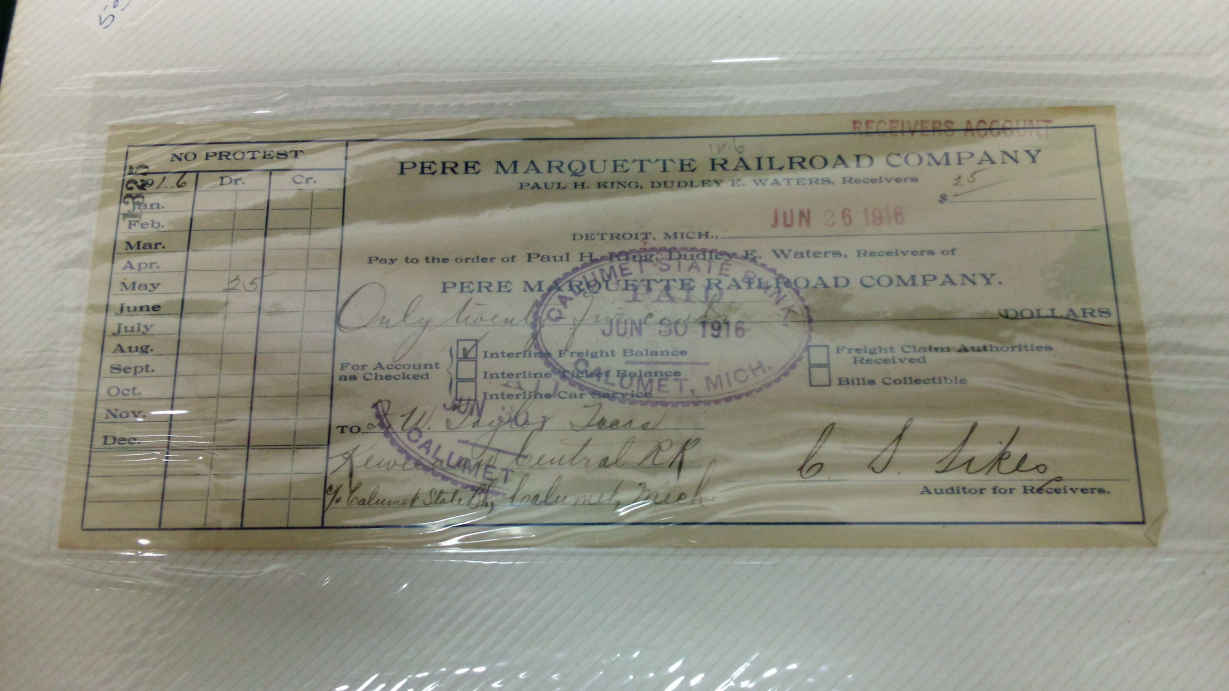 RECEIVERS ACCOUNT
NO PROTEST
1325
1916 Dr. Cr.
Jan.
Feb.
Mar.
Apr.
May 25
June
July
Aug.
Sept.
Oct.
Nov.
Dec.
PERE MARQUETTE RAILROAD COMPANY
PAUL H. KING, DUDLEY E. WATERS, Receivers
$ 25
DETROIT, MICH., JUN 26 1916
Pay to the order of Paul H. King, Dudley E. Waters, Receivers of
PERE MARQUETTE RAILROAD COMPANY.
Only twenty five cents DOLLARS
CALUMET STATE BANK.
PAID
JUN 30 1916
CALUMET, MICH.
For Account as Checked
Interline Freight Balance
Interline Ticket Balance
Interline Car Service
Freight Claim Authorities Received
Bills Collectible
JUN 30
CALUMET
TO W. Treas
Keweenaw Central RR
c/o Calumet State Bk, Calumet, Mich
C. S. Sikes
Auditor for Receivers.